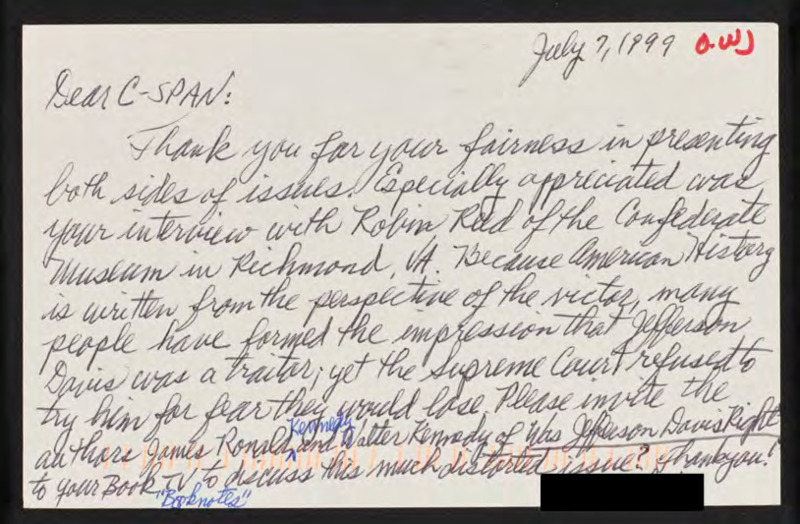 July 7, 1999 O.W.
Dear C-SPAN:
Thank you for your fairness in presenting
both sides of issues. Especially appreciated was
your interview with Robin Reed of the Confederate
Museum in Richmond, VA. Because American History
is written from the perspective of the victor, many
people have formed the impression that Jefferson
Davis was a traitor; yet the Supreme Court refused to
try him for fear they would lose. Please invite the
authors James Ronald ^Kennedy and Walter Kennedy of Was Jefferson Davis Right
to your Book TV to discuss this much distorted issue? Thank you!
"Booknotes"